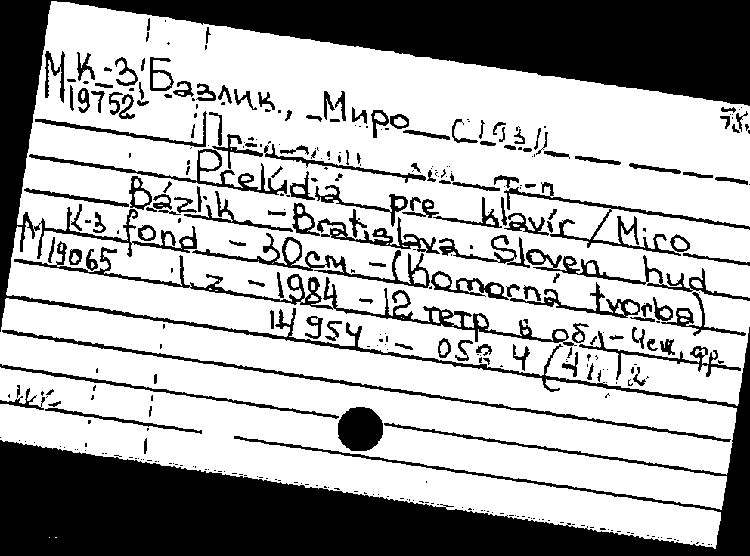 М К-3 Базлик, Миро (1931)
19752
Prelúdiá pre klavír / Miro
Bázlik. - Bratislava: Sloven. hud.
М К-3 fond - 30см. - (Komorná tvorba)
19065 1. z - 1984 - 12 тетр в обл - Чеш, фр.
14954 - 058.4